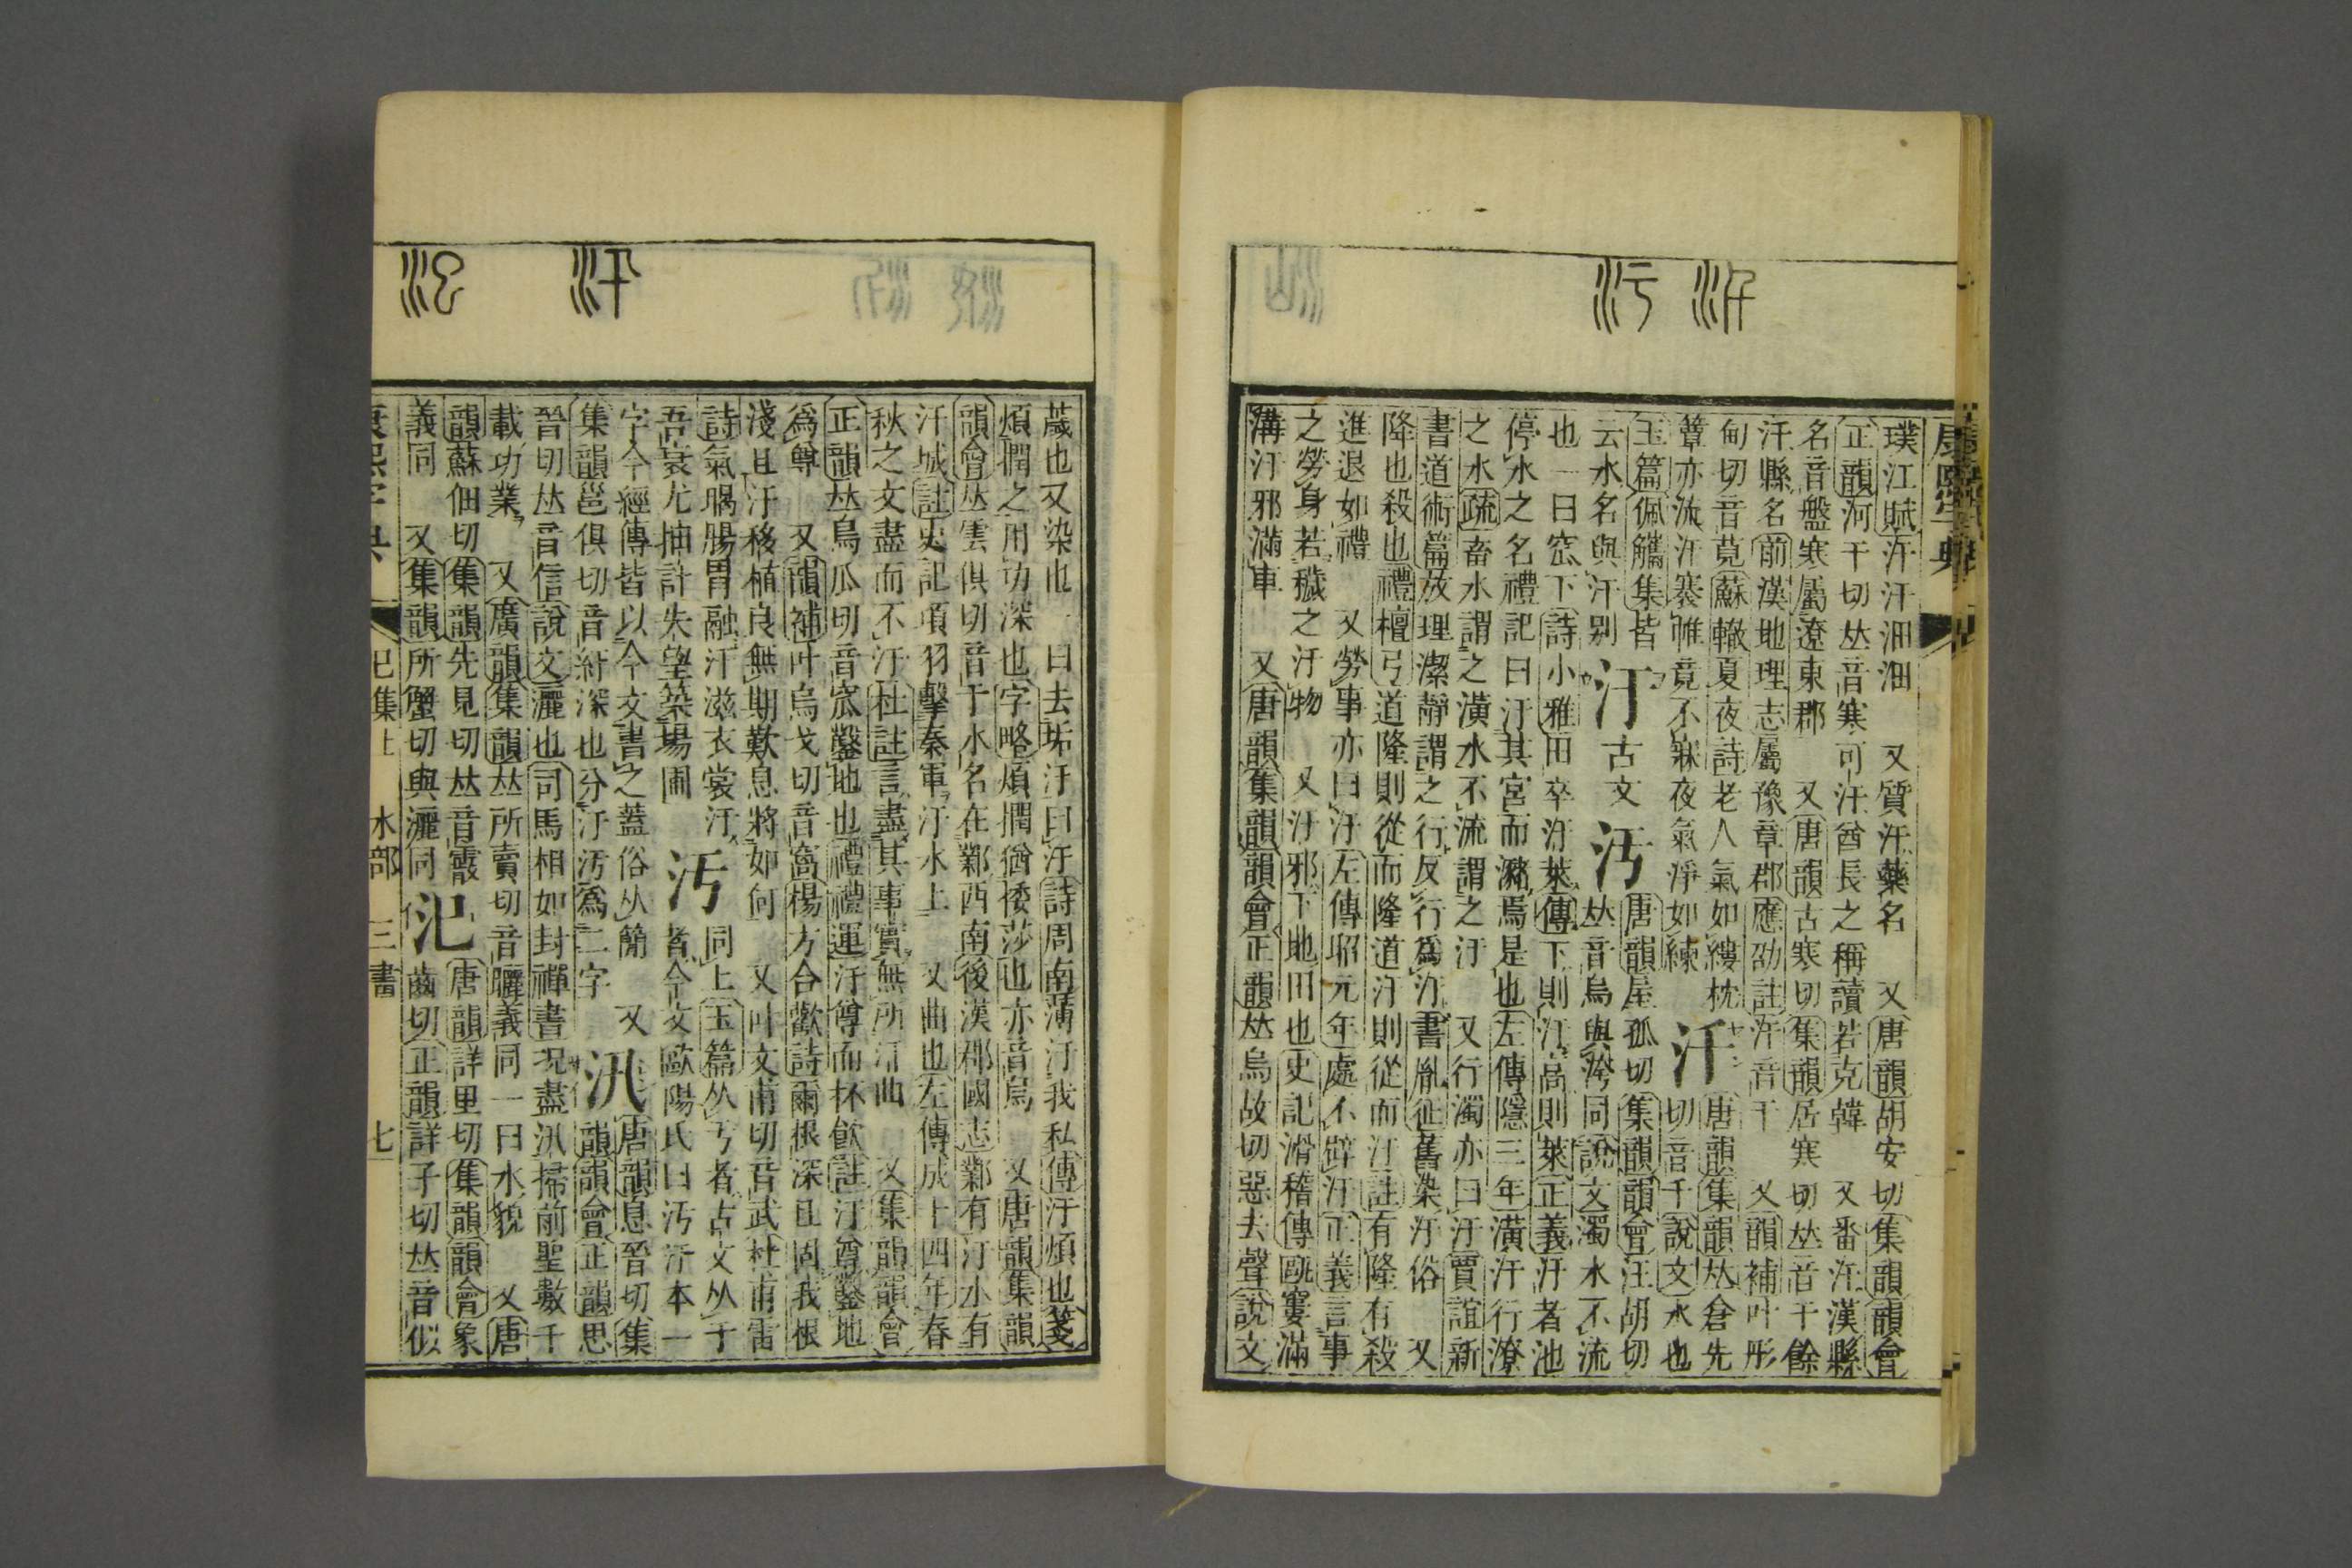 璞江賦汗汗沺沺　又質汗藥名　又唐韻胡安切集韻韻會
正韻河干切𠀤音寒可汗酋長之稱讀若克韓　又番汗漢縣
名音盤寒屬遼東郡　又唐韻古寒切集韻居寒切𠀤音干餘
汗縣名前漢地理志屬豫章郡應劭註汗音干　又韻補叶形
甸切音莧蘇轍夏夜詩老人氣如縷枕
簟亦流汗褰帷竟不寐夜氣淨如練
汘
唐韻集韻𠀤倉先
切音千說文水也
玉篇佩觿集皆
云水名與汗别
汙
古文
汚
唐韻屋孤切集韻韻會汪胡切
𠀤音烏與洿同說文濁水不流
也一曰窊下詩小雅田卒汙萊傳下則汙高則萊正義汙者池
停水之名禮記曰汙其宮而瀦焉是也左傳隱三年潢汙行潦
之水疏畜水謂之潢水不流謂之汙　又行濁亦曰汙賈誼新
書道術篇放理潔靜謂之行反行爲汙書胤征舊染汙俗　又
降也殺也禮檀弓道隆則從而隆道汙則從而汙註有隆有殺
進退如禮　又勞事亦曰汙左傳昭元年處不辟汙正義言事
之勞身若穢之汙物　又汙邪下地田也史記滑稽傳甌窶滿
溝汙邪滿車　又唐韻集韻韻會正韻𠀤烏故切惡去聲說文
薉也又染也一曰去垢汙曰汙詩周南薄汙我私傳汙煩也箋
煩撋之用功深也字略煩撋猶捼莎也亦音烏　又唐韻集韻
韻會𠀤雲俱切音于水名在鄴西南後漢郡國志鄴有汙水有
汙城註史記項羽擊秦軍汙水上　又曲也左傳成十四年春
秋之文盡而不汙杜註言盡其事實無所汙曲　又集韻韻會
正韻𠀤烏瓜切音窊鑿地也禮禮運汙尊而杯飮註汙尊鑿地
爲尊　又韻補叶烏戈切音窩楊方合歡詩爾根深且固我根
淺且汙移植良無期歎息將如何　又叶文甫切音武杜甫雷
詩氣暍腸胃融汙滋衣裳汙
吾衰尤拙計失望築場圃
汚
同上玉篇从亐者古文从于
者今文歐陽氏曰汚汙本一
字今經傳皆以今文書之蓋俗从簡　又
集韻邕俱切音紆深也分汙汚爲二字
汛
唐韻息晉切集
韻韻會正韻思
晉切𠀤音信說文灑也司馬相如封禪書況盡汛掃前聖數千
載功業　又廣韻集韻𠀤所賣切音曬義同一曰水貌　又唐
韻蘇佃切集韻先見切𠀤音霰
義同　又集韻所蟹切與灑同
汜
唐韻詳里切集韻韻會象
齒切正韻詳子切𠀤音似
康熙字典　巳集上　水部　三畫　七